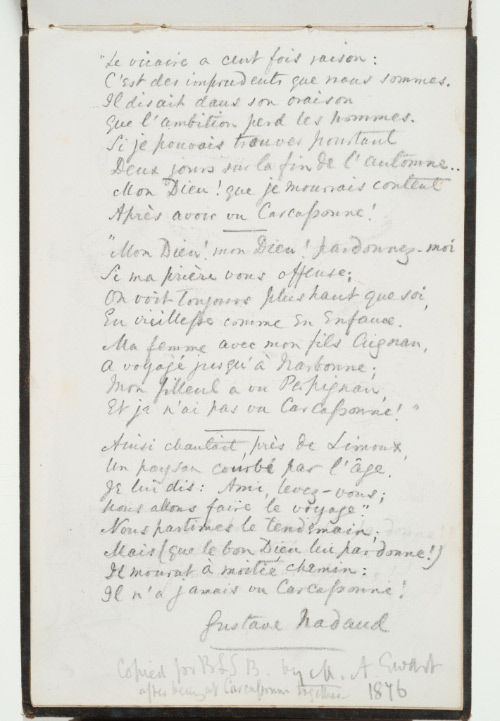 "Le vicaire a cent fois raison:
C'est des imprudents que nous sommes.
Il disait dans son oraison
Que l'ambition perd les hommes.
Si je pouvais trouver pourtant
Deux jours sur la fin de l'automne..
Mon Dieu! que je mourrais content
Après avoir vu Carcassonne!
"Mon Dieu! mon Dieu! pardonnez-moi
Si ma prière vous offense;
On voit toujours plus haut que soi,
En vieillesse comme en Enfance.
Ma femme avec mon fils Aignan,
a voyagé jusqu'à Narbonne;
Mon filleul a vu Perpignan,
Et je n'ai pas vu Carcassonne!"
Ainsi chantait, près de Limoux,
Un paysan courbé par l'âge.
Je lui dis: Ami, levez-vous;
Nous allons faire le voyage."
Nous partîmes le lendemain;
Mais (que le bon Dieu lui pardonne!)
Il mourut à moitié chemin:
Il n'a jamais vu Carcassonne!
Gustave Nadaud
Copied for B by M. A. Ewart
after being at Carcassonne together 1876